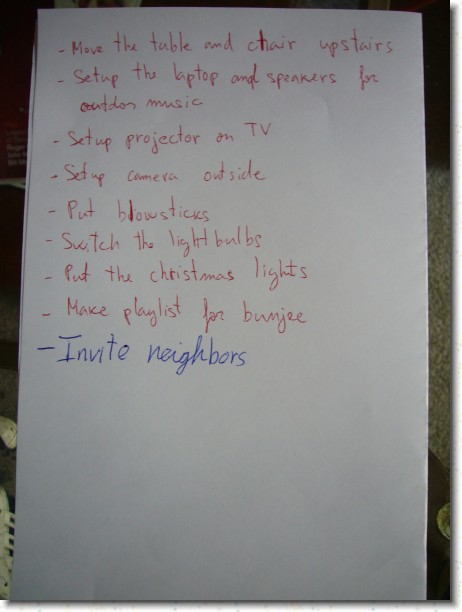 - Move the table and chair upstairs
- Setup the laptop and speakers for
outdor music
- Setup projector on TV
- Setup camera outside
- Put blowsticks
- Switch the lightbulbs
- Put the christmas lights
- Make playlist for bunjee
- Invite neighbors